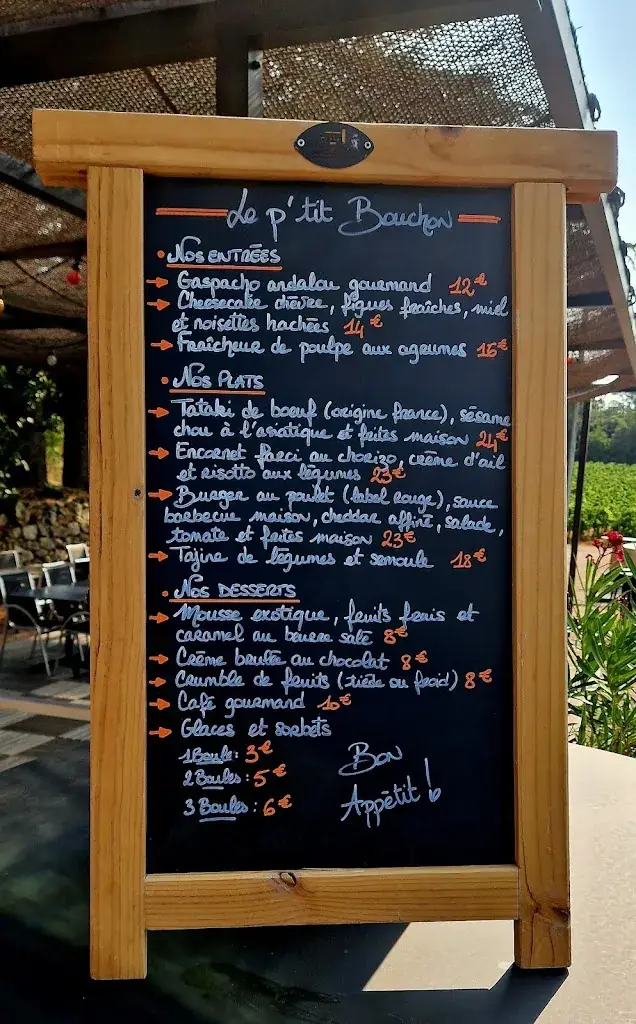 Le p'tit Bouchon
• Nos entrées
→ Gaspacho andalou gourmand 12€
→ Cheesecake chèvre, figues fraîches, miel
et noisettes hachées 14€
→ Fraîcheur de poulpe aux agrumes 16€
• Nos plats
→ Tataki de boeuf (origine france), sésame
chou à l'asiatique et frites maison 24€
→ Encornet farci au chorizo, crème d'ail
et risotto aux légumes 23€
→ Burger au poulet (label rouge), sauce
barbecue maison, cheddar affiné, salade,
tomate et frites maison 23€
→ Tajine de légumes et semoule 18€
• Nos desserts
→ Mousse exotique, fruits frais et
caramel au beurre salé 8€
→ Crème brulée au chocolat 8€
→ Crumble de fruits (tiède ou froid) 8€
→ Café gourmand 10€
→ Glaces et sorbets
1 Boule : 3€
2 Boules : 5€
3 Boules : 6€
Bon
Appétit !